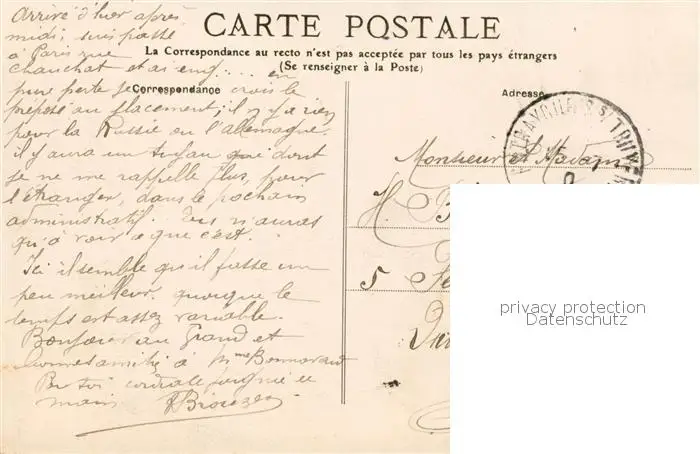 CARTE POSTALE
La Correspondance au recto n'est pas acceptée par tous les pays étrangers
(Se renseigner à la Poste)
Correspondance
Adresse
Arrivé d'hier après
midi, suis passé
à Paris rue
Chauchat et ai eng.... en
pure perte je crois le
préposé au placement; il n'y a rien
pour la Russie ou l'allemagne.
il y aura un tuyau que dont
je ne me rappelle plus, pour
l'étranger, dans le prochain
administratif. Tu n'auras
qu'à voir ce que c'est.
Ici il semble qu'il fasse un
peu meilleur. quoique le
temps est assez variable.
Bonjour au Grand et
bonnes amitiés à Mme Bonnavaud
Par toi cordiale poignée de
main
Monsieur et Madame
H. B
5
privacy protection
Datenschutz